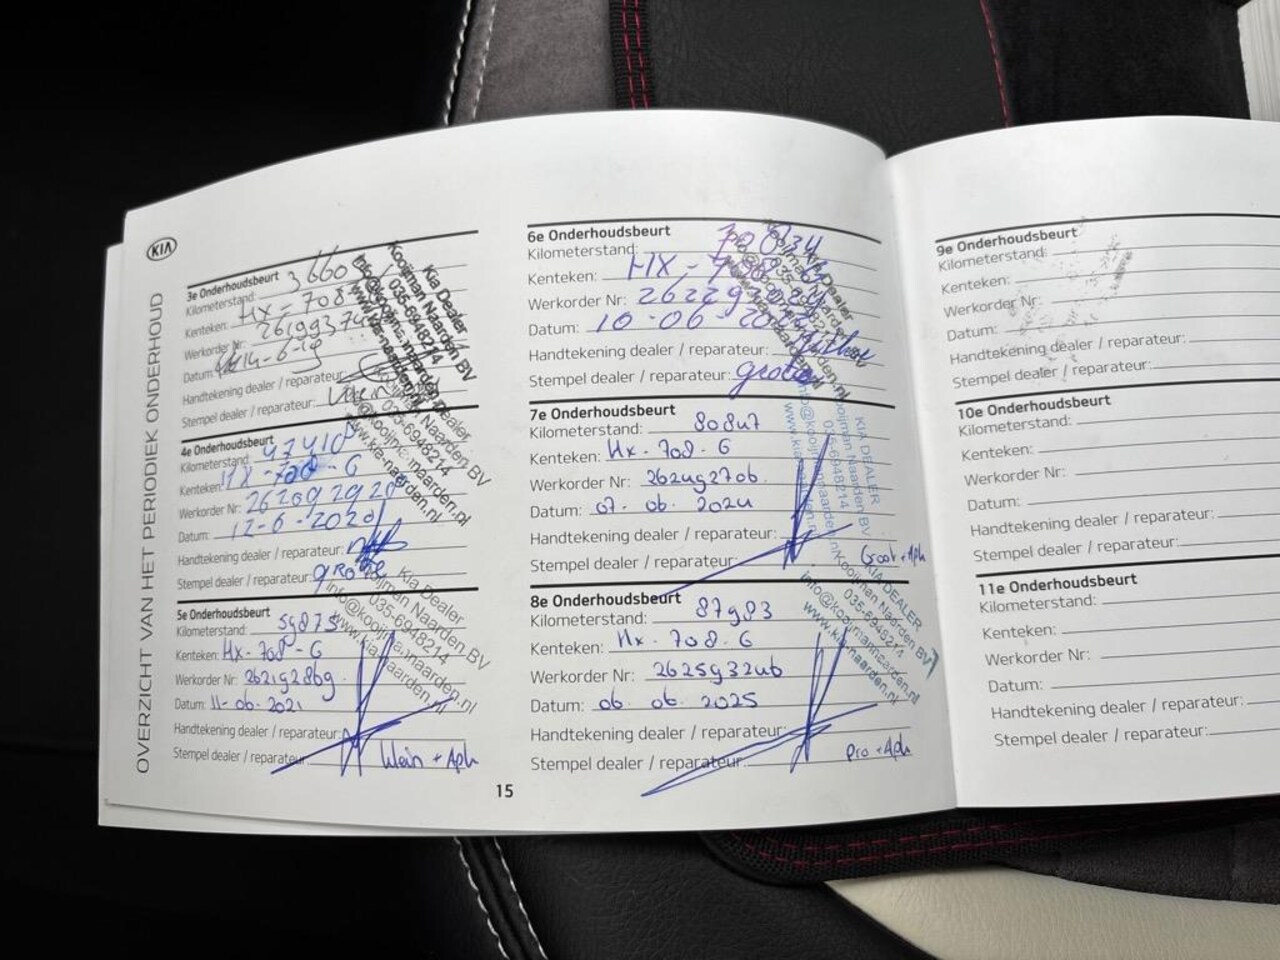 KIA
OVERZICHT VAN HET PERIODIEK ONDERHOUD
3e Onderhoudsbeurt
Kilometerstand: 3660
Kenteken: HX-708
Werkorder Nr: 26199374
Datum: 14-6-19
Handtekening dealer / reparateur:
Stempel dealer / reparateur: Klein
Kia Dealer
Kooijman Naarden BV
035-6948214
info@kooijmannaarden.nl
www.kia-naarden.nl
4e Onderhoudsbeurt
Kilometerstand: 47410
Kenteken: HX-708-G
Werkorder Nr: 26209292
Datum: 12-6-2020
Handtekening dealer / reparateur:
Stempel dealer / reparateur: grote
Kia Dealer
Kooijman Naarden BV
035-6948214
info@kooijmannaarden.nl
www.kia-naarden.nl
5e Onderhoudsbeurt
Kilometerstand: 59875
Kenteken: Hx-708-G
Werkorder Nr: 262192869
Datum: 11-06-2021
Handtekening dealer / reparateur:
Stempel dealer / reparateur: Klein + Apk
Kia Dealer
Kooijman Naarden BV
035-6948214
info@kooijmannaarden.nl
www.kia-naarden.nl
6e Onderhoudsbeurt
Kilometerstand:
Kenteken: HX-708
Werkorder Nr: 26229
Datum: 10-06-20
Handtekening dealer / reparateur:
Stempel dealer / reparateur: grote
7e Onderhoudsbeurt
Kilometerstand: 80847
Kenteken: Hx-708-G
Werkorder Nr: 262492706
Datum: 07-06-2024
Handtekening dealer / reparateur:
Stempel dealer / reparateur: Groot + Apk
KIA DEALER
Kooijman Naarden BV
035-6948214
info@kooijmannaarden.nl
www.kia-naarden.nl
8e Onderhoudsbeurt
Kilometerstand: 87983
Kenteken: Hx-708-G
Werkorder Nr: 262593246
Datum: 06-06-2025
Handtekening dealer / reparateur:
Stempel dealer / reparateur: Pro + Apk
KIA DEALER
Kooijman Naarden BV
035-6948214
info@kooijmannaarden.nl
www.kia-naarden.nl
15
9e Onderhoudsbeurt
Kilometerstand:
Kenteken:
Werkorder Nr:
Datum:
Handtekening dealer / reparateur:
Stempel dealer / reparateur:
10e Onderhoudsbeurt
Kilometerstand:
Kenteken:
Werkorder Nr:
Datum:
Handtekening dealer / reparateur:
Stempel dealer / reparateur:
11e Onderhoudsbeurt
Kilometerstand:
Kenteken:
Werkorder Nr:
Datum:
Handtekening dealer / reparateur:
Stempel dealer / reparateur: